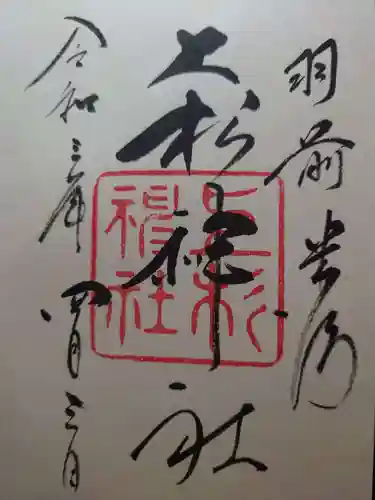 羽前 米沢
上杉神社
令和三年四月三日
上杉
神社